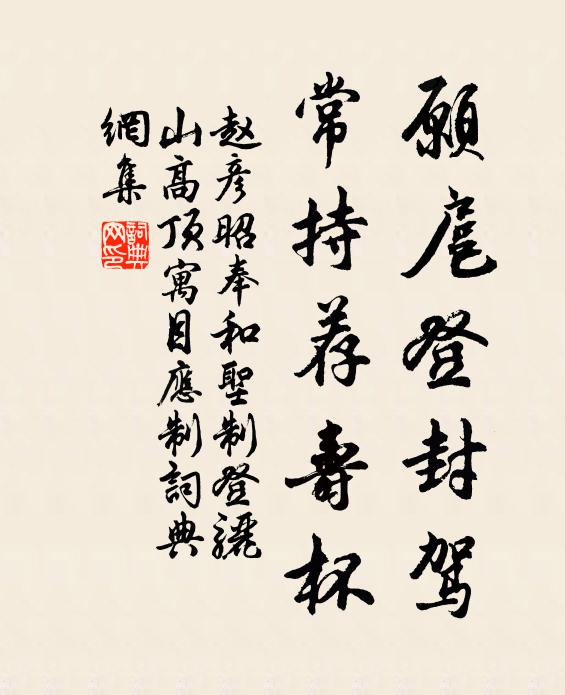 願扈登封駕
常持荐壽杯
赵彦昭奉和聖制登驪
山高頂寓目應制詞典
網集
詞典網印